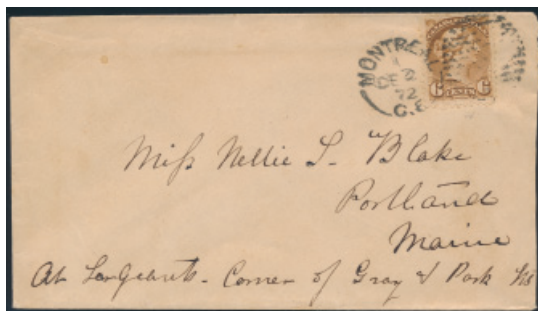 MONTREAL
1
DE 2
72
C.E
6 6
Miss Nellie S. Blake
Portland
Maine
At Sargeants - Corner of Gray & Park Sts